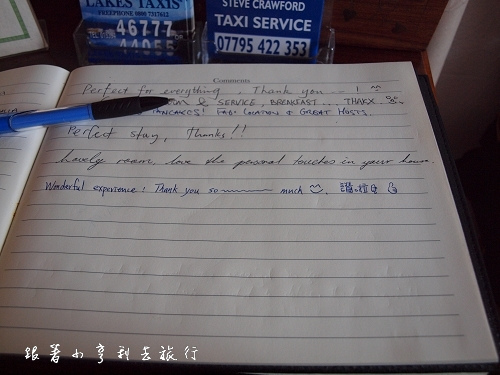 LAKES TAXIS
FREEPHONE 0800 7317612
46777
OR
44055
STEVE CRAWFORD
TAXI SERVICE
07795 422 353
Comments
Perfect for everything, Thank you -- ! ^^
& SERVICE, BREAKFAST.... THANX
PANCAKES! FAB LOCATION & GREAT HOSTS.
Perfect stay, Thanks!!
Lovely room, love the personal touches in your house.
Wonderful experience! Thank you so~~~~~ much ☺. 讚啦
跟著小亨利去旅行